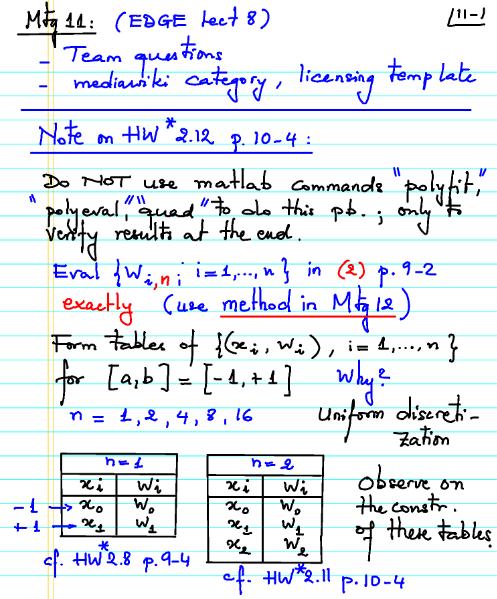 Mtg 11: (EDGE Lect 8) 11-1
- Team questions
- mediawiki category, licensing template
Note on HW*2.12 p. 10-4:
Do NOT use matlab commands "polyfit,"
"polyeval," "quad" to do this pb.; only to
verify results at the end.
Eval {W_{i,n}; i=1,...,n} in (2) p. 9-2
exactly (use method in Mtg 12)
Form tables of {(x_i, W_i), i=1,...,n}
for [a,b] = [-1,+1] Why?
n = 1, 2, 4, 8, 16 Uniform discreti-
zation
n=1
x_i W_i
-1 → x_0 W_0
+1 → x_1 W_1
cf. HW*2.8 p. 9-4
n=2
x_i W_i
x_0 W_0
x_1 W_1
x_2 W_2
cf. HW*2.11 p. 10-4
Observe on
the constr.
of these tables.